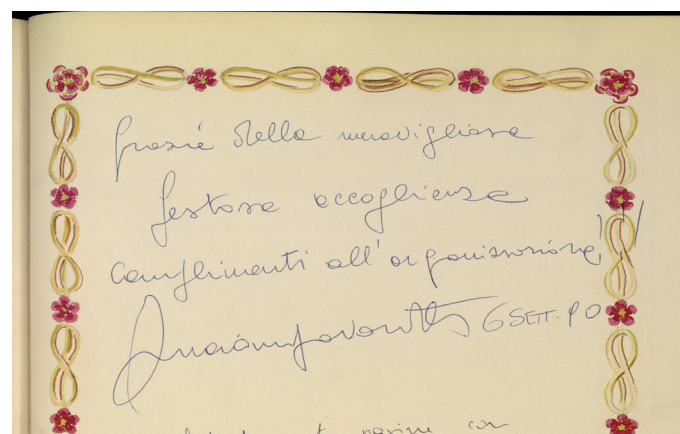 Grazie della meravigliosa
festosa accoglienza
complimenti all'organizzazione!!!
Luciano Pavarotti 6 SETT. 90